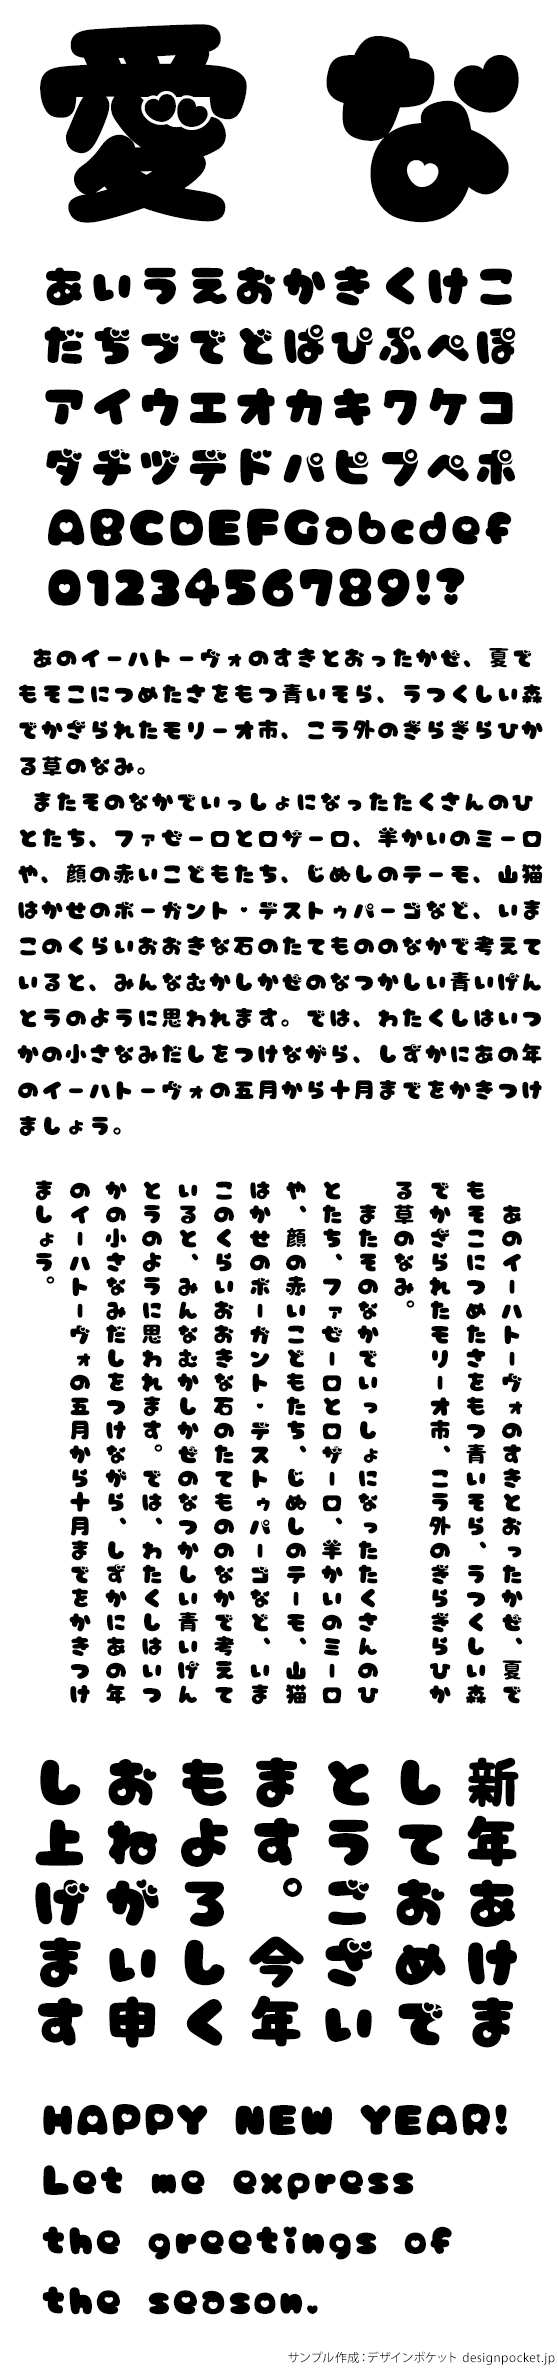 愛な
あいうえおかきくけこ
だぢづでどぱぴぷぺぽ
アイウエオカキクケコ
ダヂヅデドパピプペポ
ABCDEFGabcdef
0123456789!?
あのイーハトーヴォのすきとおったかぜ、夏で
もそこにつめたさをもつ青いそら、うつくしい森
でかざられたモリーオ市、こう外のぎらぎらひか
る草のなみ。
またそのなかでいっしょになったたくさんのひ
とたち、ファゼーロとロザーロ、羊かいのミーロ
や、顔の赤いこどもたち、じぬしのテーモ、山猫
はかせのボーガント・デストゥパーゴなど、いま
このくらいおおきな石のたてもののなかで考えて
いると、みんなむかしかぜのなつかしい青いげん
とうのように思われます。では、わたくしはいつ
かの小さなみだしをつけながら、しずかにあの年
のイーハトーヴォの五月から十月までをかきつけ
ましょう。
あのイーハトーヴォのすきとおったかぜ、夏で
もそこにつめたさをもつ青いそら、うつくしい森
でかざられたモリーオ市、こう外のぎらぎらひか
る草のなみ。
またそのなかでいっしょになったたくさんのひ
とたち、ファゼーロとロザーロ、羊かいのミーロ
や、顔の赤いこどもたち、じぬしのテーモ、山猫
はかせのボーガント・デストゥパーゴなど、いま
このくらいおおきな石のたてもののなかで考えて
いると、みんなむかしかぜのなつかしい青いげん
とうのように思われます。では、わたくしはいつ
かの小さなみだしをつけながら、しずかにあの年
のイーハトーヴォの五月から十月までをかきつけ
ましょう。
新年あけま
しておめで
とうござい
ます。今年
もよろしく
おねがい申
し上げます
HAPPY NEW YEAR!
Let me express
the greetings of
the season.
サンプル作成：デザインポケット designpocket.jp